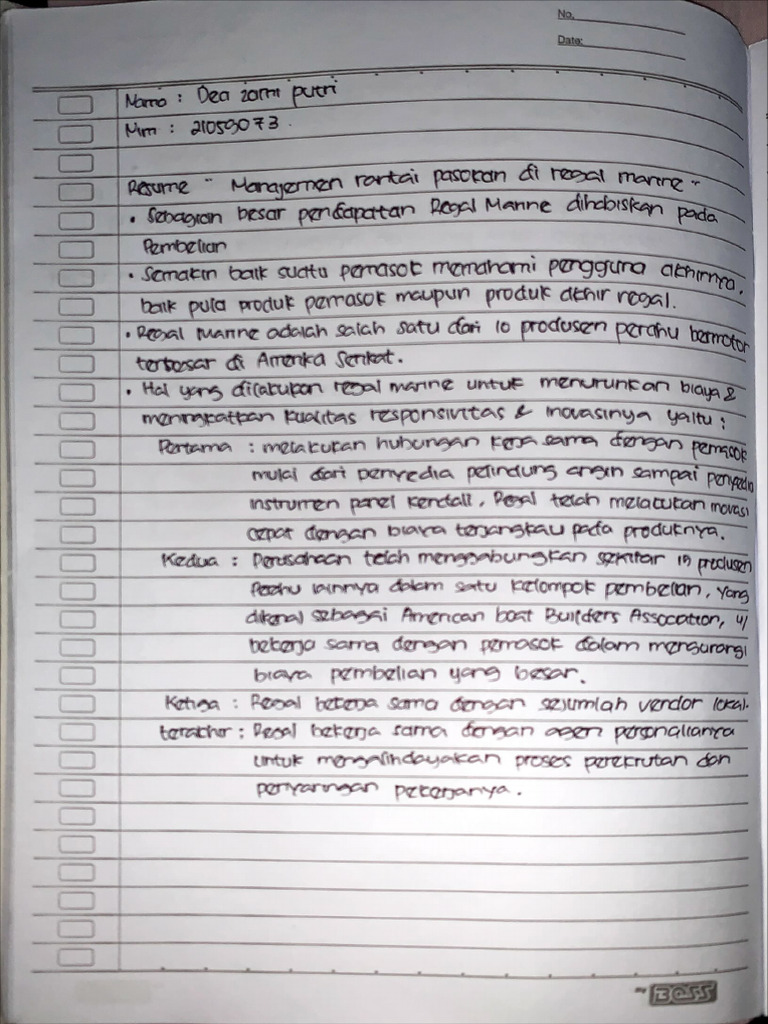 No.
Date:
Nama : Dea zami putri
Nim : 21059073
Resume " Manajemen rantai pasokan di regal marine "
• Sebagian besar pendapatan Regal Marine dihabiskan pada
Pembelian
• Semakin baik suatu pemasok memahami pengguna akhirnya,
baik pula produk pemasok maupun produk akhir regal.
• Regal Marine adalah salah satu dari 10 produsen perahu bermotor
terbesar di Amerika Serikat.
• Hal yang dilakukan regal marine untuk menurunkan biaya &
meningkatkan kualitas responsivitas & inovasinya yaitu :
Pertama : melakukan hubungan kerja sama dengan pemasok
mulai dari penyedia pelindung angin sampai penyedia
instrumen panel kendali. Regal telah melakukan inovasi
cepat dengan biaya terjangkau pada produknya.
Kedua : Perusahaan telah menggabungkan sekitar 15 produsen
Perahu lainnya dalam satu kelompok pembelian, yang
dikenal sebagai American boat Builders Assocation, u/
bekerja sama dengan pemasok dalam mengurangi
biaya pembelian yang besar.
Ketiga : Regal bekerja sama dengan sejumlah vendor lokal.
terakhir : Regal bekerja sama dengan agen personalianya
untuk proses perekrutan dan
penyaringan pekerjanya.
BOSS